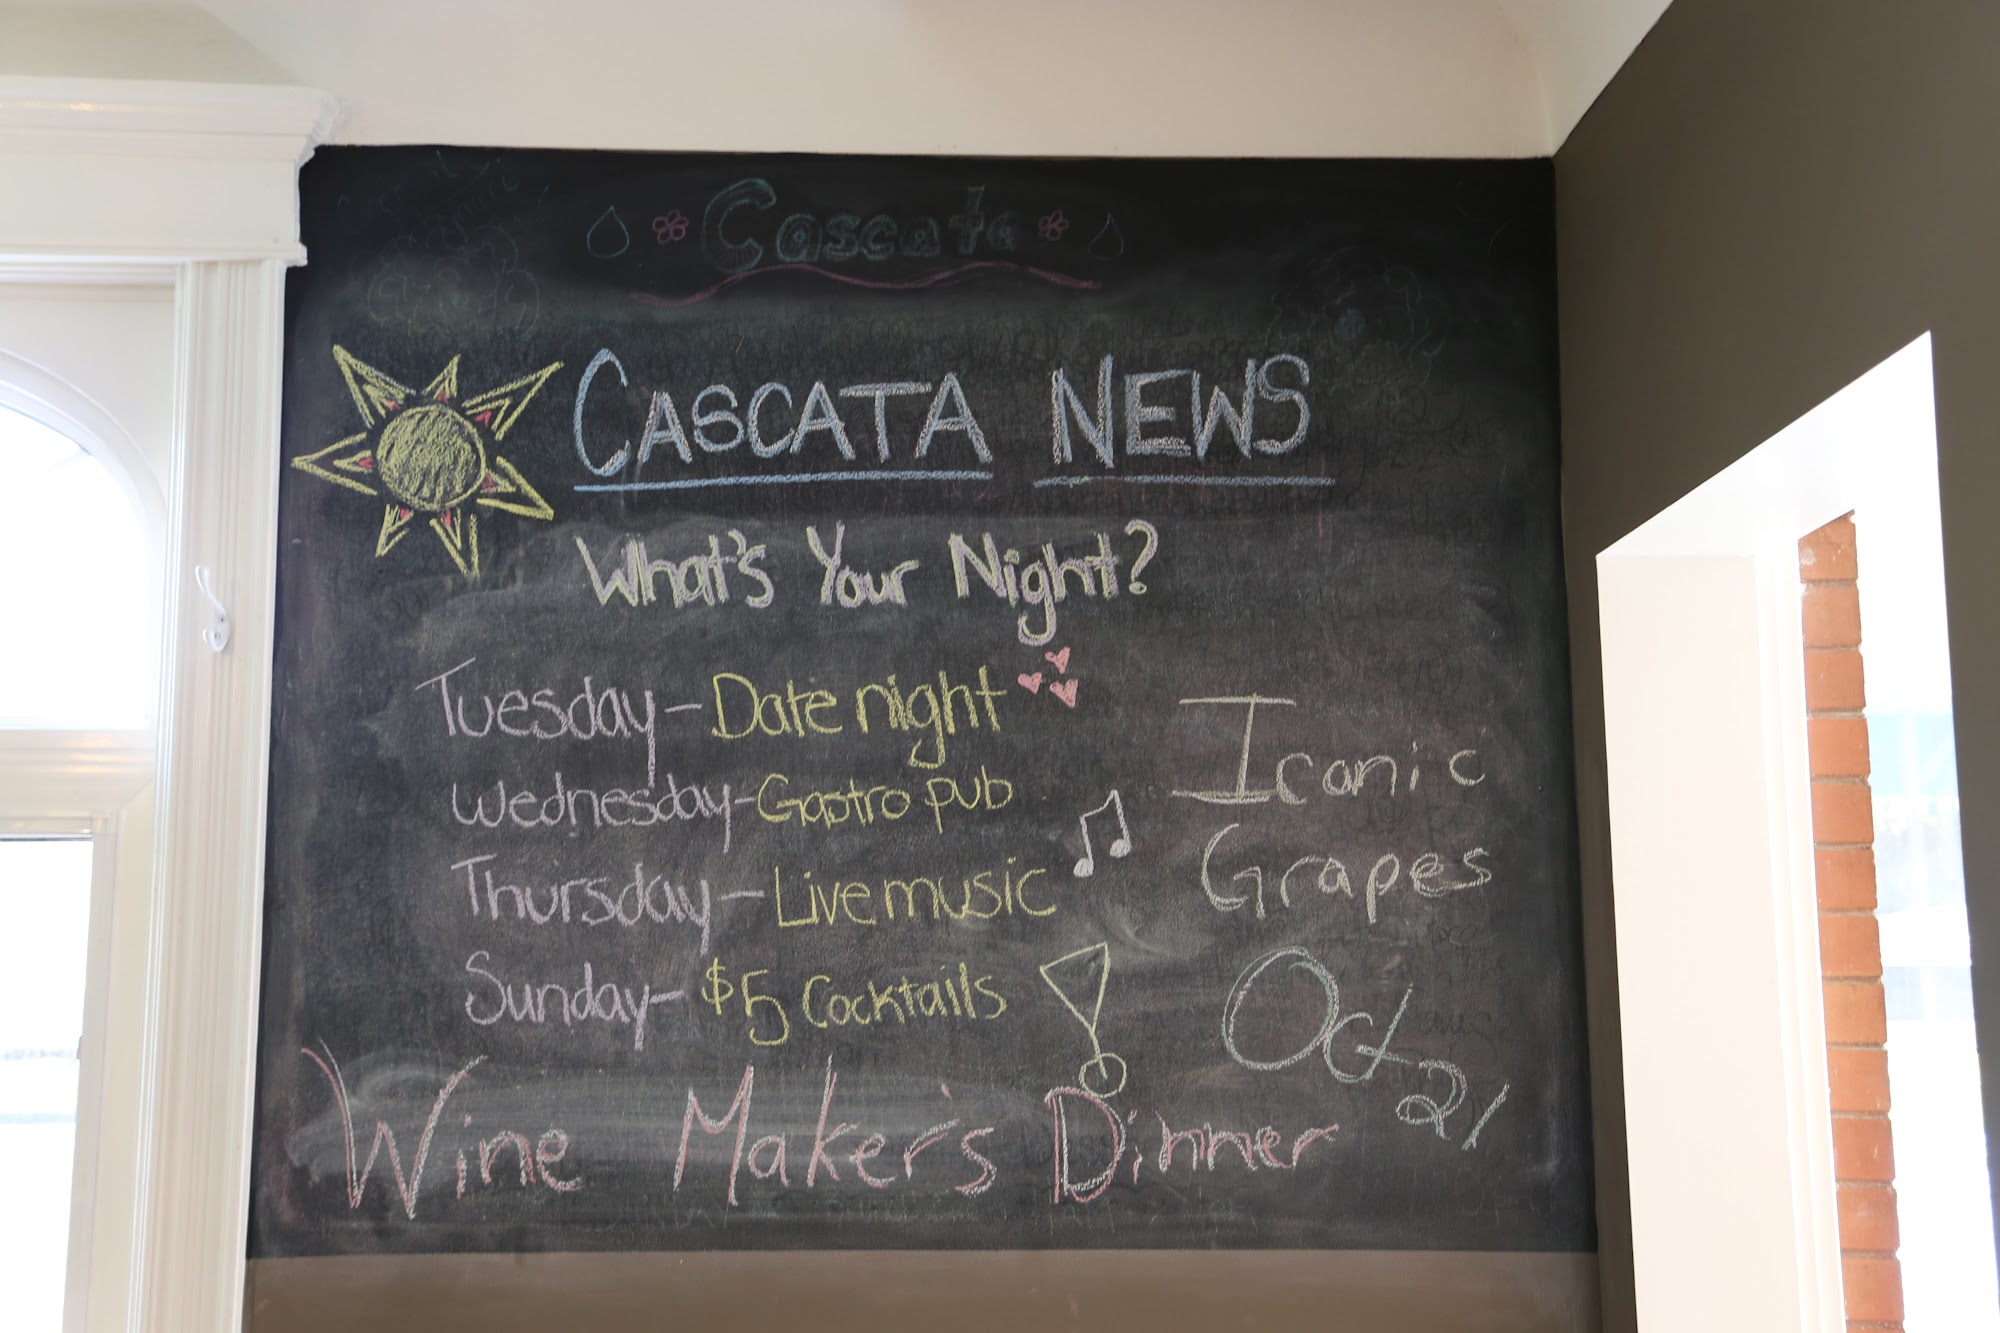 Cascata
CASCATA NEWS
What's Your Night?
Tuesday - Date night
Wednesday - Gastro pub
Thursday - Live music
Sunday - $5 Cocktails
Iconic
Grapes
Oct 21
Wine Maker's Dinner